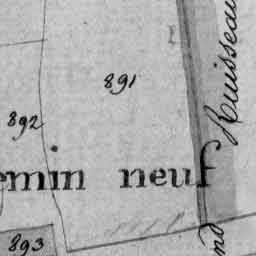 891
892
emin neuf
893
Ruisseau
nd